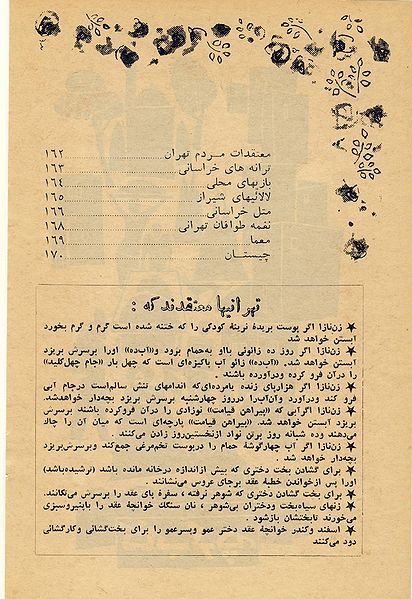 معتقدات مردم تهران ۱۶۲
ترانه های خراسانی ۱۶۳
بازیهای محلی ۱۶۴
لالائیهای شیراز ۱۶۵
متل خراسانی ۱۶۶
نغمه طوافان تهرانی ۱۶۸
معما ۱۶۹
چیستان ۱۷۰
تهرانیها معتقدند که :
★ زن‌نازا اگر پوست بریدهٔ نرینهٔ کودکی را که ختنه شده است گرم و گرم بخورد
آبستن خواهد شد
★ زن‌نازا اگر روز ده زائوئی بااو به‌حمام برود و «آب‌ده» اورا برسرش بریزد
آبستن خواهد شد. «آب‌ده» آب پاکیزه‌ای است که چهل بار «جام چهل‌کلید»
را درآن فرو کرده ودرآورده باشند .
★ زن‌نازا اگر هزارپای زنده یامرده‌ای‌که اندامهای تنش سالم‌است درجام آبی
فرو کند ودرآورد وآن‌آب‌را درروز چهارشنبه برسرش بریزد بچه‌دار خواهدشد.
★ زن‌نازا اگرآبی که «پیراهن قیامت» نوزادی را درآن فروکرده باشند برسرش
بریزد آبستن خواهد شد. «پیراهن قیامت» پارچه‌ای است که میان آن را چاک
می‌دهند وده شبانه روز برتن نواد ازنخستین‌روز زادن می‌کنند .
★ زن‌نازا اگر آب چهارگوشهٔ حمام را درپوست تخم‌مرغی جمع‌کند وبرسرش‌بریزد
بچه‌دار خواهد شد .
★ برای گشادن بخت دختری که بیش ازاندازه درخانه مانده باشد (ترشیده‌باشد)
اورا پس ازخواندن خطبهٔ عقد برجای عروس می‌نشانند .
★ برای بخت گشادن دختری که شوهر نرفته ، سفرهٔ پای عقد را برسرش می‌تکانند.
★ زنهای سیاه‌بخت ودختران بی‌شوهر ، نان سنگک خوانچهٔ عقد را باپنیروسبزی
می‌خورند تابختشان بازشود .
★ اسفند وکندر خوانچهٔ عقد دختر عمو وپسرعمو را برای بخت‌گشائی وکارگشائی
دود می‌کنند